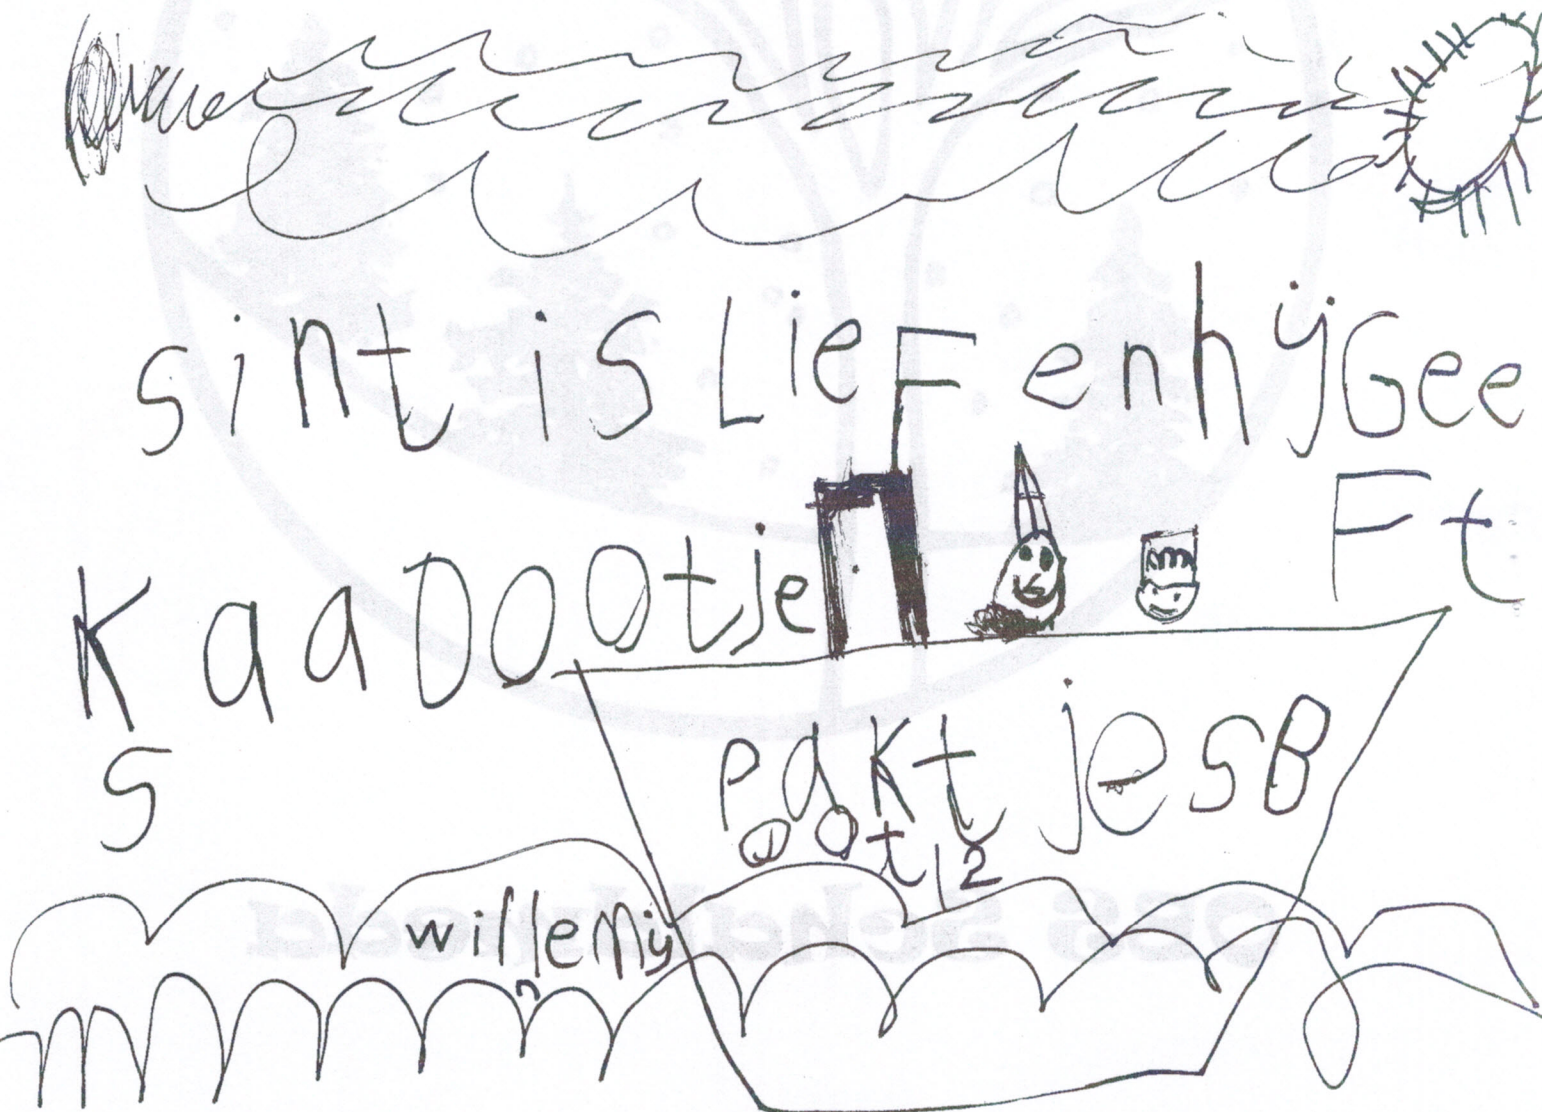 sint is LieF enhijGee
Ft
KaaDoOtje
s
pakt jesB
oot 12
willemij
n